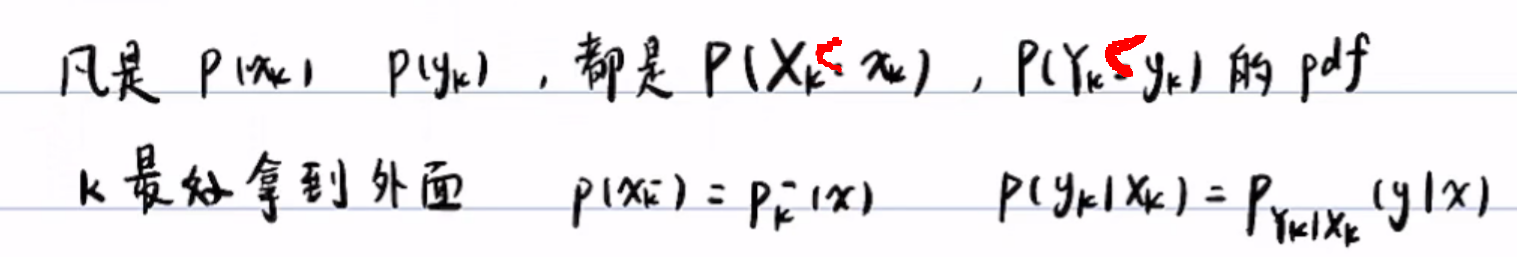 凡是 p(x_k) p(y_k) , 都是 P(X_k < x_k) , P(Y_k < y_k) 的 pdf
k 最好拿到外面 p(x_k^-) = p_k^-(x) p(y_k|x_k) = p_{Y_k|X_k}(y|x)